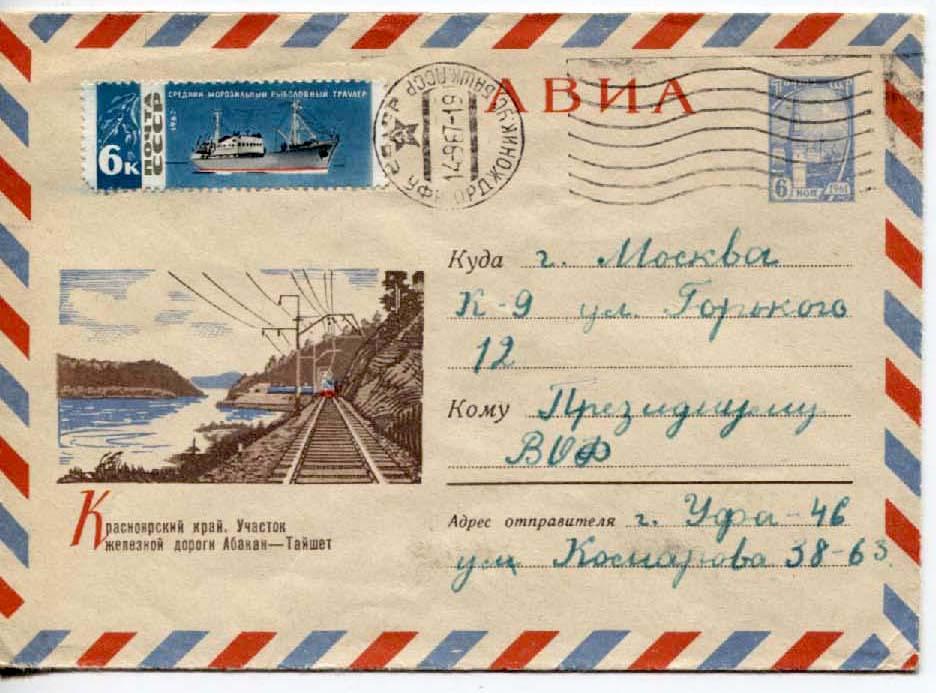 СРЕДНИЙ МОРОЗИЛЬНЫЙ РЫБОЛОВНЫЙ ТРАУЛЕР
ПОЧТА
СССР
1967
6к
14-967-19
УФА ОРДЖОНИКИДЗ
БАШК.АССР
АВИА
6 КОП 1961
Куда г. Москва
К-9 ул. Горького
12
Кому Президиуму
ВОФ
Адрес отправителя г. Уфа-46
ул Комарова 38-63
Красноярский край. Участок
железной дороги Абакан—Тайшет